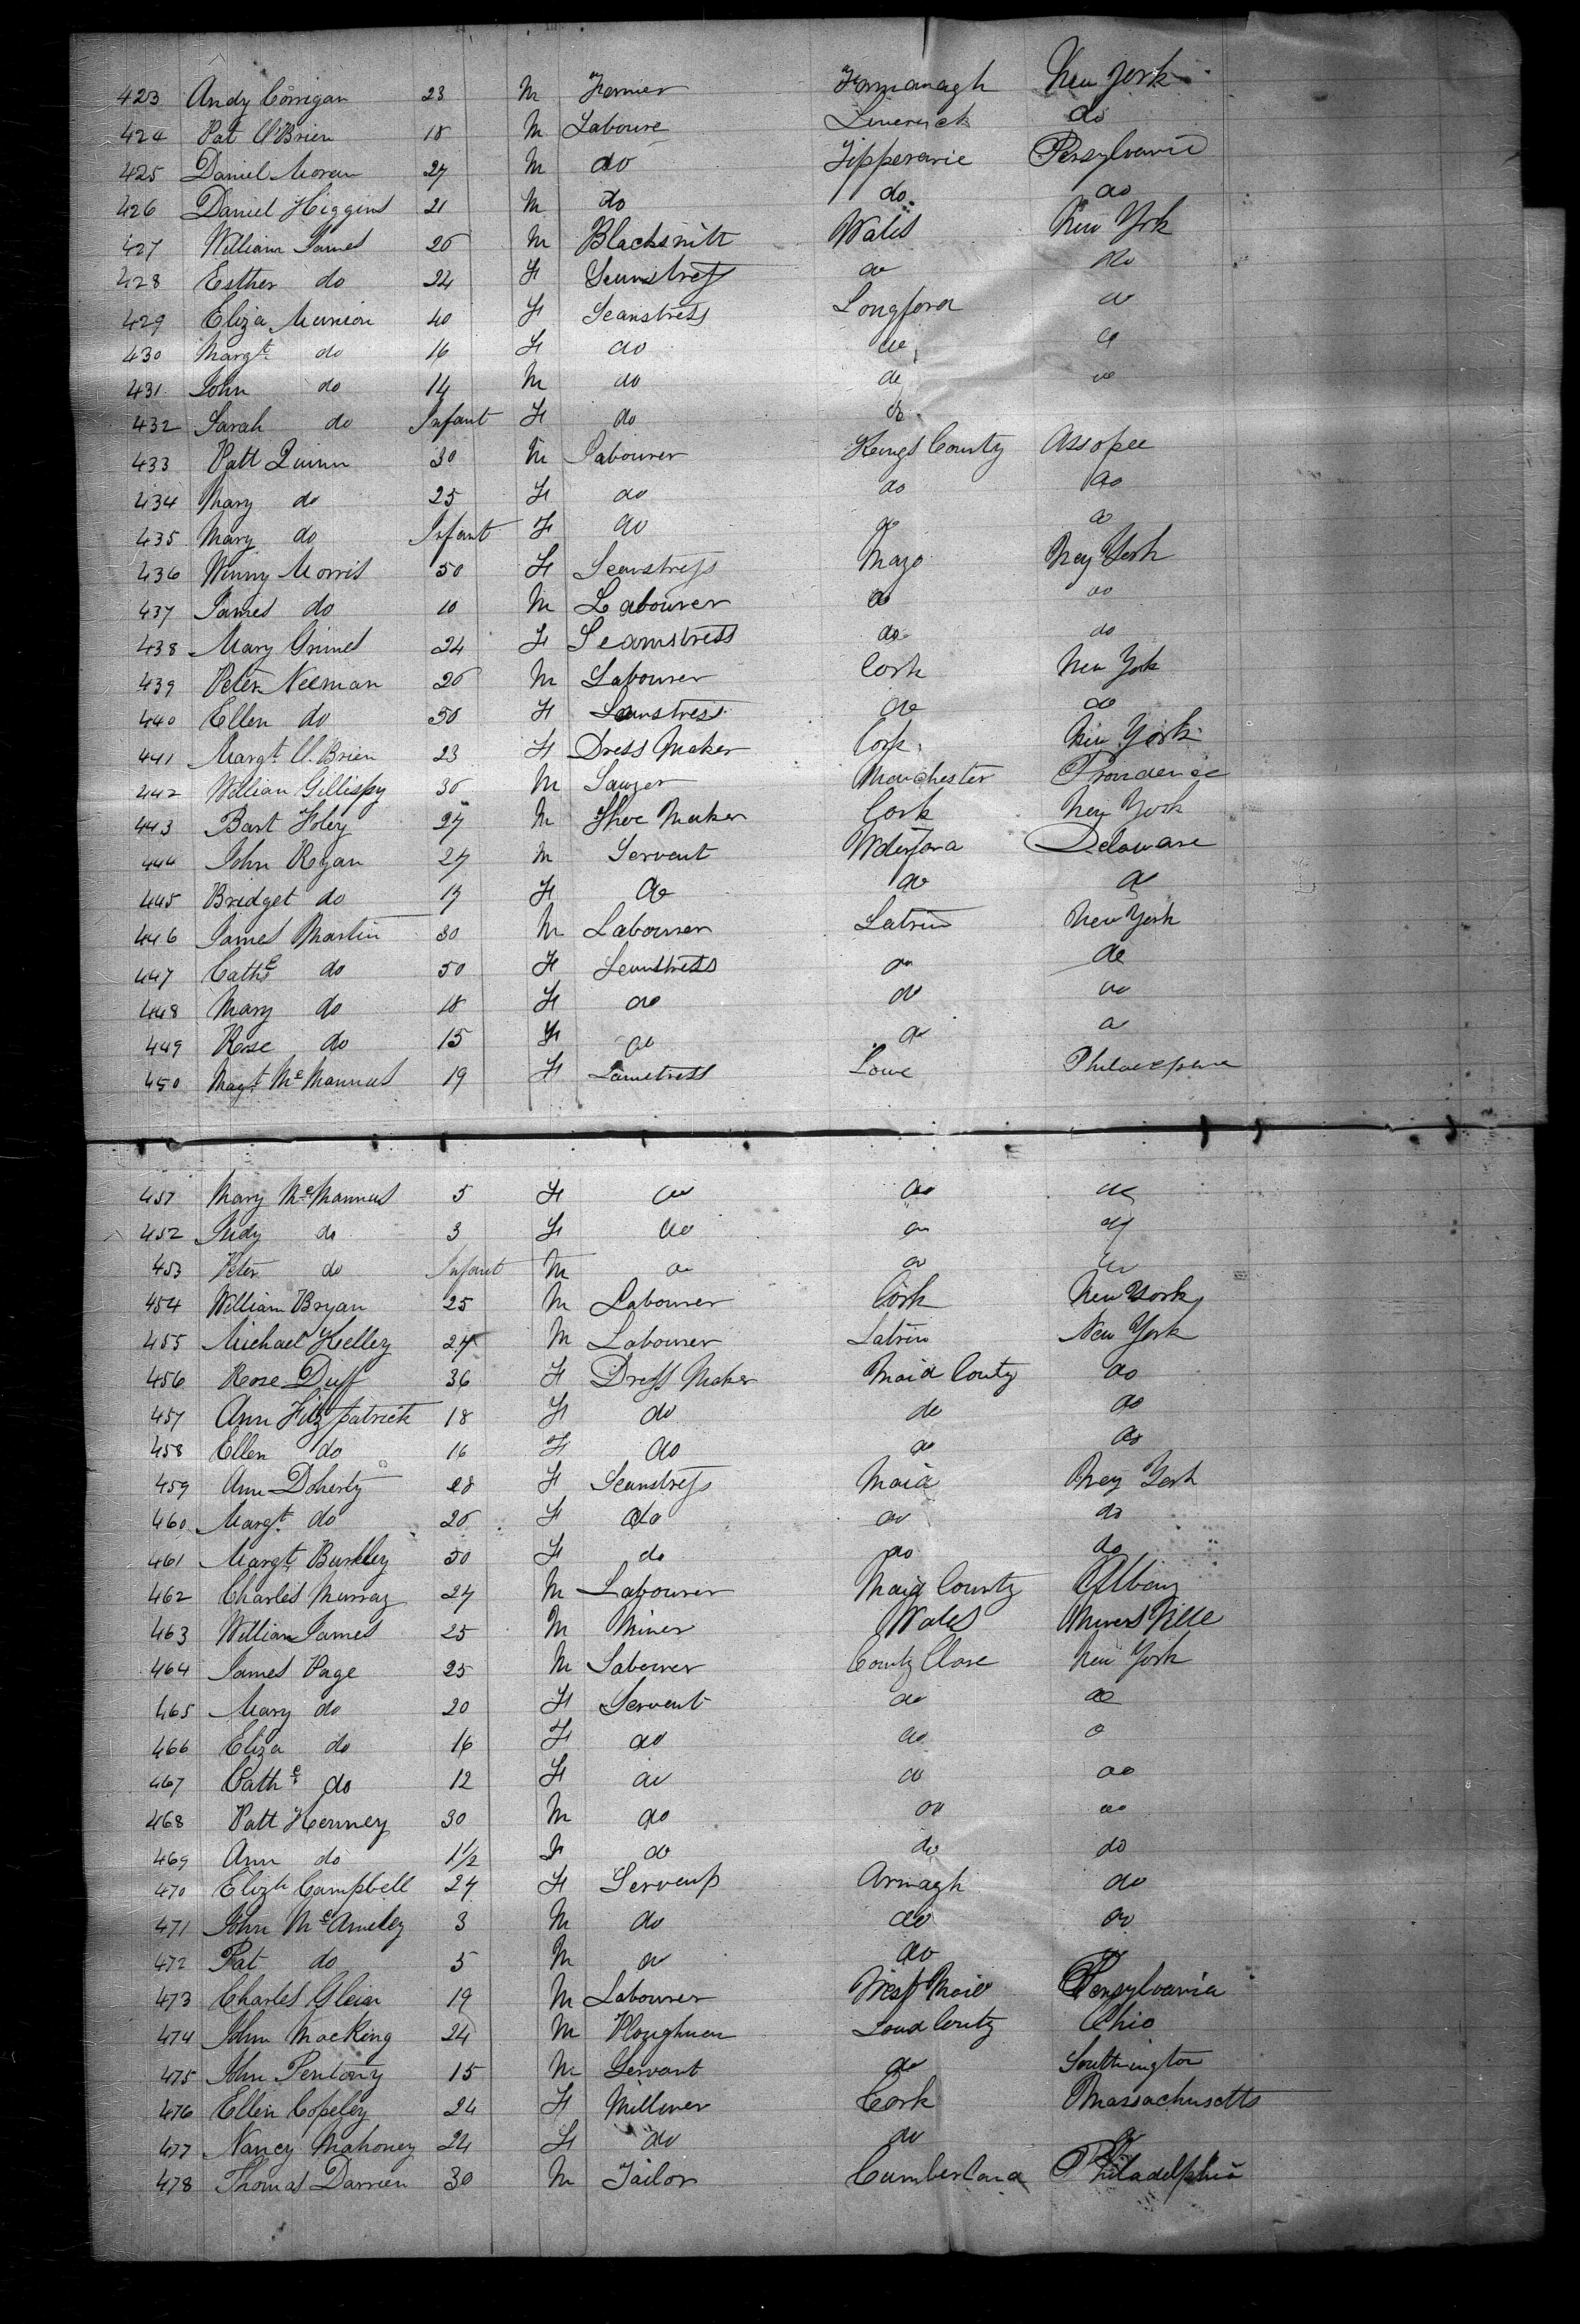 423 Andy Corrigan 23 M Farmer Farmanagh New York
424 Pat O'Brien 18 M Laboure Limerick do
425 Daniel Moran 27 M do Tipperarie Pensylvania
426 Daniel Higgins 21 M do do do
427 William James 26 M Blacksmith Wales New York
428 Esther do 24 F Seamstress do do
429 Eliza Munion 40 F Seamstress Longford do
430 Margt do 16 F do do do
431 John do 14 M do do do
432 Sarah do Infant F do do
433 Patt Quinn 30 M Labourer Kings County Assopee
434 Mary do 25 F do do do
435 Mary do Infant F do do do
436 Winny Morris 50 F Seamstress Mayo New York
437 James do 10 M Labourer do do
438 Mary Grimes 24 F Seamstress do do
439 Peter Neeman 26 M Labourer Cork New York
440 Ellen do 50 F Seamstress do do
441 Margt O.Brien 23 F Dress Maker Cork New York
442 William Gillispy 30 M Sawyer Manchester Providence
443 Bart Foley 27 M Shoe Maker Cork New York
444 John Ryan 27 M Servent Delaware
445 Bridget do 17 F do do do
446 James Martin 30 M Labourer Latrim New York
447 Cathe do 50 F Seamstress do do
448 Mary do 18 F do do do
449 Rose do 15 F do do do
450 Magt McMannus 19 F Seamstress Lowe
451 Mary McMannus 5 F do do do
452 Judy do 3 F do do do
453 Peter do Infant M do do do
454 William Bryan 25 M Labourer Cork New York
455 Michael Kelley 27 M Labourer Latrim New York
456 Rose Duff 36 F Dress Maker Maid Conty do
457 Ann Fitzpatrick 18 F do do do
458 Ellen do 16 F do do do
459 Ann Doherty 28 F Seamstress Maid New York
460 Margt do 26 F do do do
461 Margt Burkley 50 F do do do
462 Charles Murray 27 M Labourer Maid County Albany
463 William James 25 M Miner Wales Miners Ville
464 James Page 25 M Labourer County Clare New York
465 Mary do 20 F Servent do do
466 Eliza do 16 F do do do
467 Cathe do 12 F do do do
468 Patt Kenney 30 M do do do
469 Ann do 1½ F do do do
470 Elizh Campbell 27 F Armagh do
471 John 3 M do do do
472 Pat do 5 M do do do
473 Charles 19 M Labourer West Pensylvania
474 John Macking 24 M Ploughman Ohio
475 John Pentony 15 M Servant do Southington
476 Ellen Copeley 24 F Milliner Cork Massachusetts
477 Nancy Mahoney 24 F do do do
478 Thomas Darrien 30 M Tailor Cumberland Philadelphia